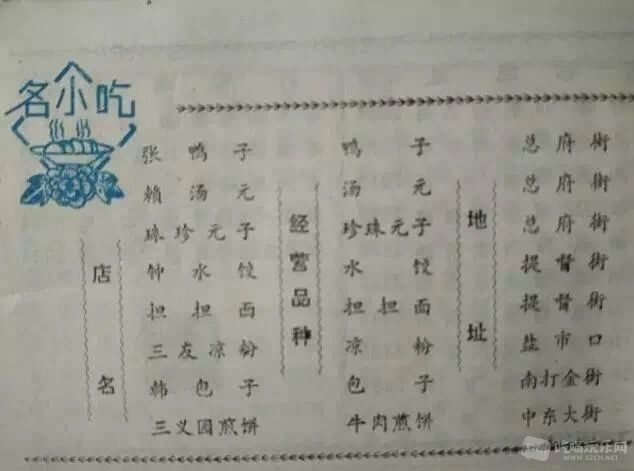 名小吃
店名
张鸭子
赖汤元
珠珍元子
钟水饺
担担面
三友凉粉
韩包子
三义园煎饼
经营品种
鸭子
汤元
珍珠元子
水饺
担担面
凉粉
包子
牛肉煎饼
地址
总府街
总府街
总府街
提督街
提督街
盐市口
南打金街
中东大街
吃喝玩乐网